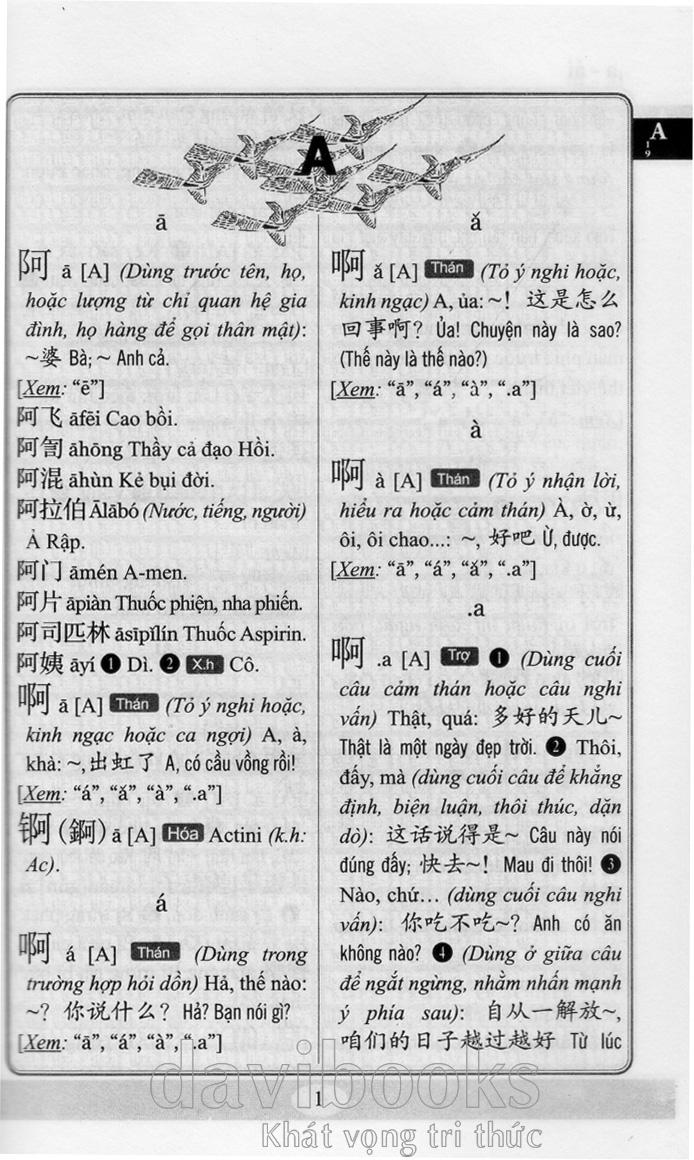 A
A
1
9
ā
阿 ā [A] (Dùng trước tên, họ,
hoặc lượng từ chỉ quan hệ gia
đình, họ hàng để gọi thân mật):
~婆 Bà; ~ Anh cả.
[Xem: “ē”]
阿飞 āfēi Cao bồi.
阿訇 āhōng Thầy cả đạo Hồi.
阿混 āhùn Kẻ bụi đời.
阿拉伯 Ālābó (Nước, tiếng, người)
Ả Rập.
阿门 āmén A-men.
阿片 āpiàn Thuốc phiện, nha phiến.
阿司匹林 āsīpǐlín Thuốc Aspirin.
阿姨 āyí ❶ Dì. ❷ X.h Cô.
啊 ā [A] Thán (Tỏ ý nghi hoặc,
kinh ngạc hoặc ca ngợi) A, à,
khà: ~,出虹了 A, có cầu vồng rồi!
[Xem: “á”, “ǎ”, “à”, “.a”]
锕(錒) ā [A] Hóa Actini (k.h:
Ac).
á
啊 á [A] Thán (Dùng trong
trường hợp hỏi dồn) Hả, thế nào:
~? 你说什么? Hả? Bạn nói gì?
[Xem: “ā”, “á”, “à”, “.a”]
ǎ
啊 ǎ [A] Thán (Tỏ ý nghi hoặc,
kinh ngạc) A, ủa: ~! 这是怎么
回事啊? Ủa! Chuyện này là sao?
(Thế này là thế nào?)
[Xem: “ā”, “á”, “à”, “.a”]
à
啊 à [A] Thán (Tỏ ý nhận lời,
hiểu ra hoặc cảm thán) À, ờ, ừ,
ôi, ôi chao...: ~, 好吧 Ừ, được.
[Xem: “ā”, “á”, “ǎ”, “.a”]
.a
啊 .a [A] Trợ ❶ (Dùng cuối
câu cảm thán hoặc câu nghi
vấn) Thật, quá: 多好的天儿~
Thật là một ngày đẹp trời. ❷ Thôi,
đấy, mà (dùng cuối câu để khẳng
định, biện luận, thôi thúc, dặn
dò): 这话说得是~ Câu này nói
đúng đấy; 快去~! Mau đi thôi! ❸
Nào, chứ… (dùng cuối câu nghi
vấn): 你吃不吃~? Anh có ăn
không nào? ❹ (Dùng ở giữa câu
để ngắt ngừng, nhằm nhấn mạnh
ý phía sau): 自从一解放~,
咱们的日子越过越好 Từ lúc
1
davibooks
Khát vọng tri thức